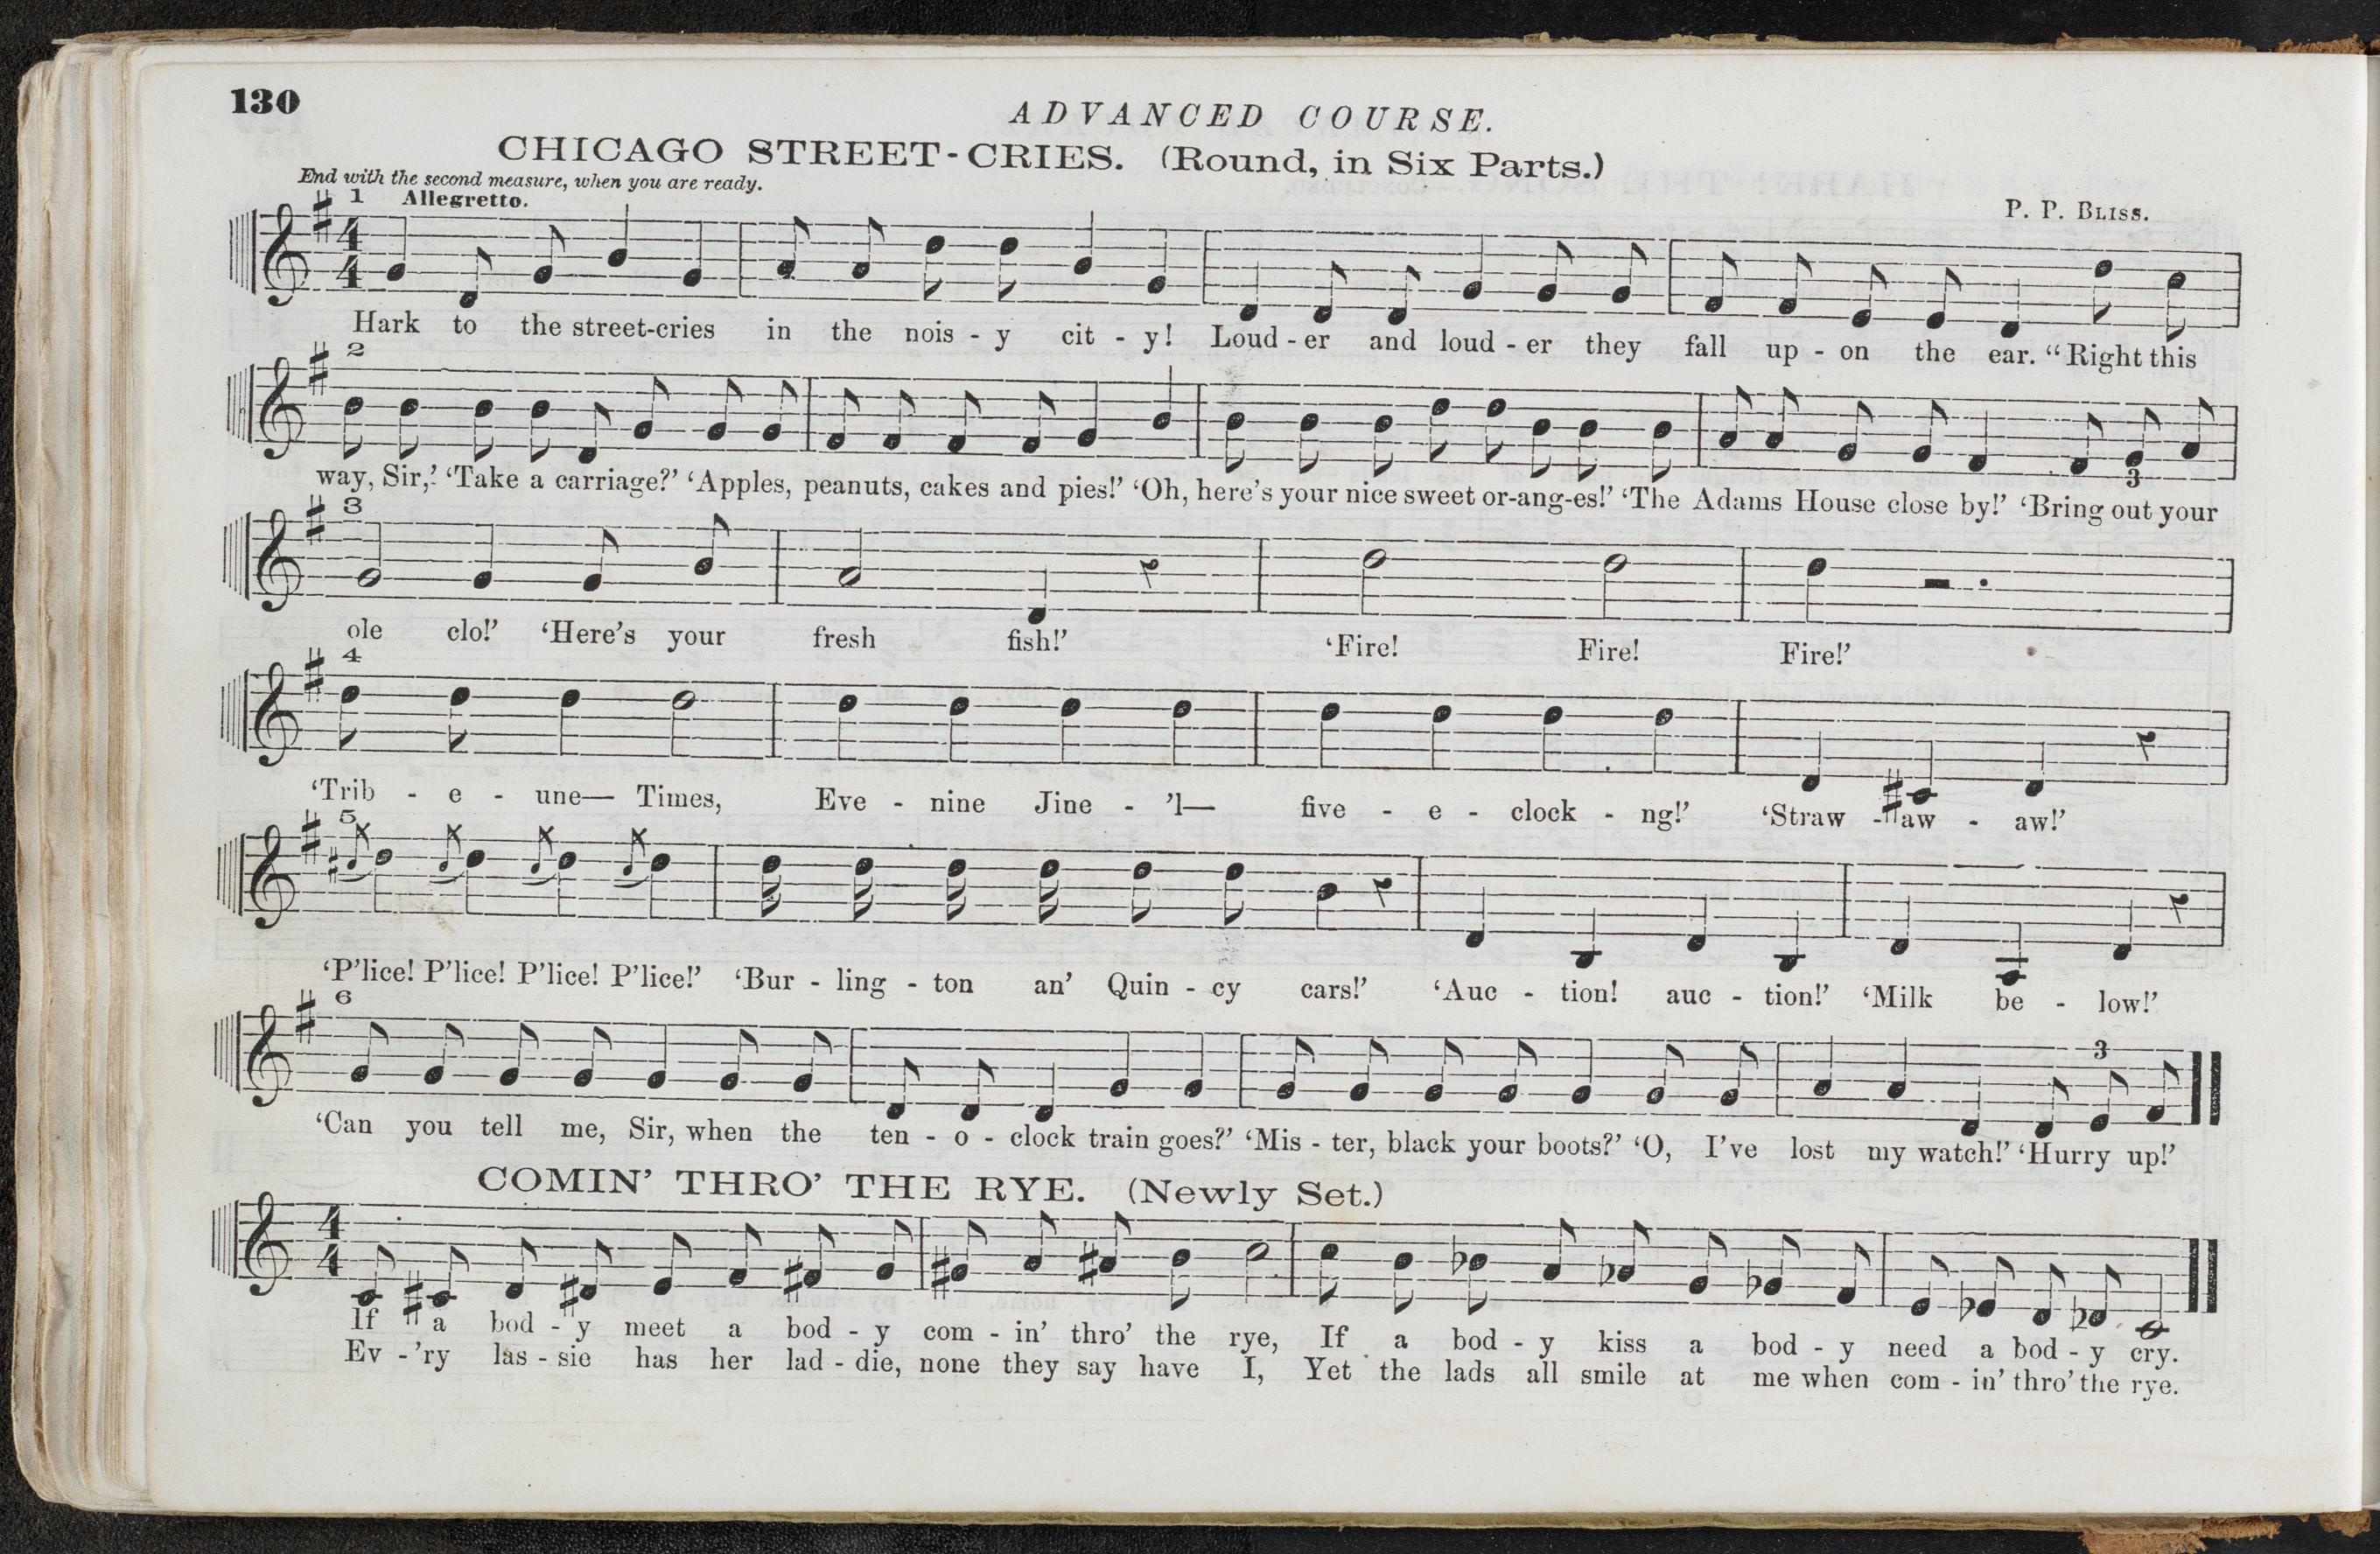 130
ADVANCED COURSE.
CHICAGO STREET-CRIES. (Round, in Six Parts.)
End with the second measure, when you are ready.
1 Allegretto.
P. P. BLISS.
4
4
Hark to the street-cries in the nois - y cit - y! Loud - er and loud - er they fall up - on the ear. “Right this
2
3
way, Sir,’ ‘Take a carriage?’ ‘Apples, peanuts, cakes and pies!’ ‘Oh, here’s your nice sweet or-ang-es!’ ‘The Adams House close by!’ ‘Bring out your
3
ole clo!’ ‘Here’s your fresh fish!’ ‘Fire! Fire! Fire!’
4
‘Trib - e - une— Times, Eve - nine Jine - ’l— five - e - clock - ng!’ ‘Straw - aw - aw!’
5
‘P’lice! P’lice! P’lice! P’lice!’ ‘Bur - ling - ton an’ Quin - cy cars!’ ‘Auc - tion! auc - tion!’ ‘Milk be - low!’
6
3
‘Can you tell me, Sir, when the ten - o - clock train goes?’ ‘Mis - ter, black your boots?’ ‘O, I’ve lost my watch!’ ‘Hurry up!’
COMIN’ THRO’ THE RYE. (Newly Set.)
4
4
If a bod - y meet a bod - y com - in’ thro’ the rye, If a bod - y kiss a bod - y need a bod - y cry.
Ev - ’ry las - sie has her lad - die, none they say have I, Yet the lads all smile at me when com - in’ thro’ the rye.